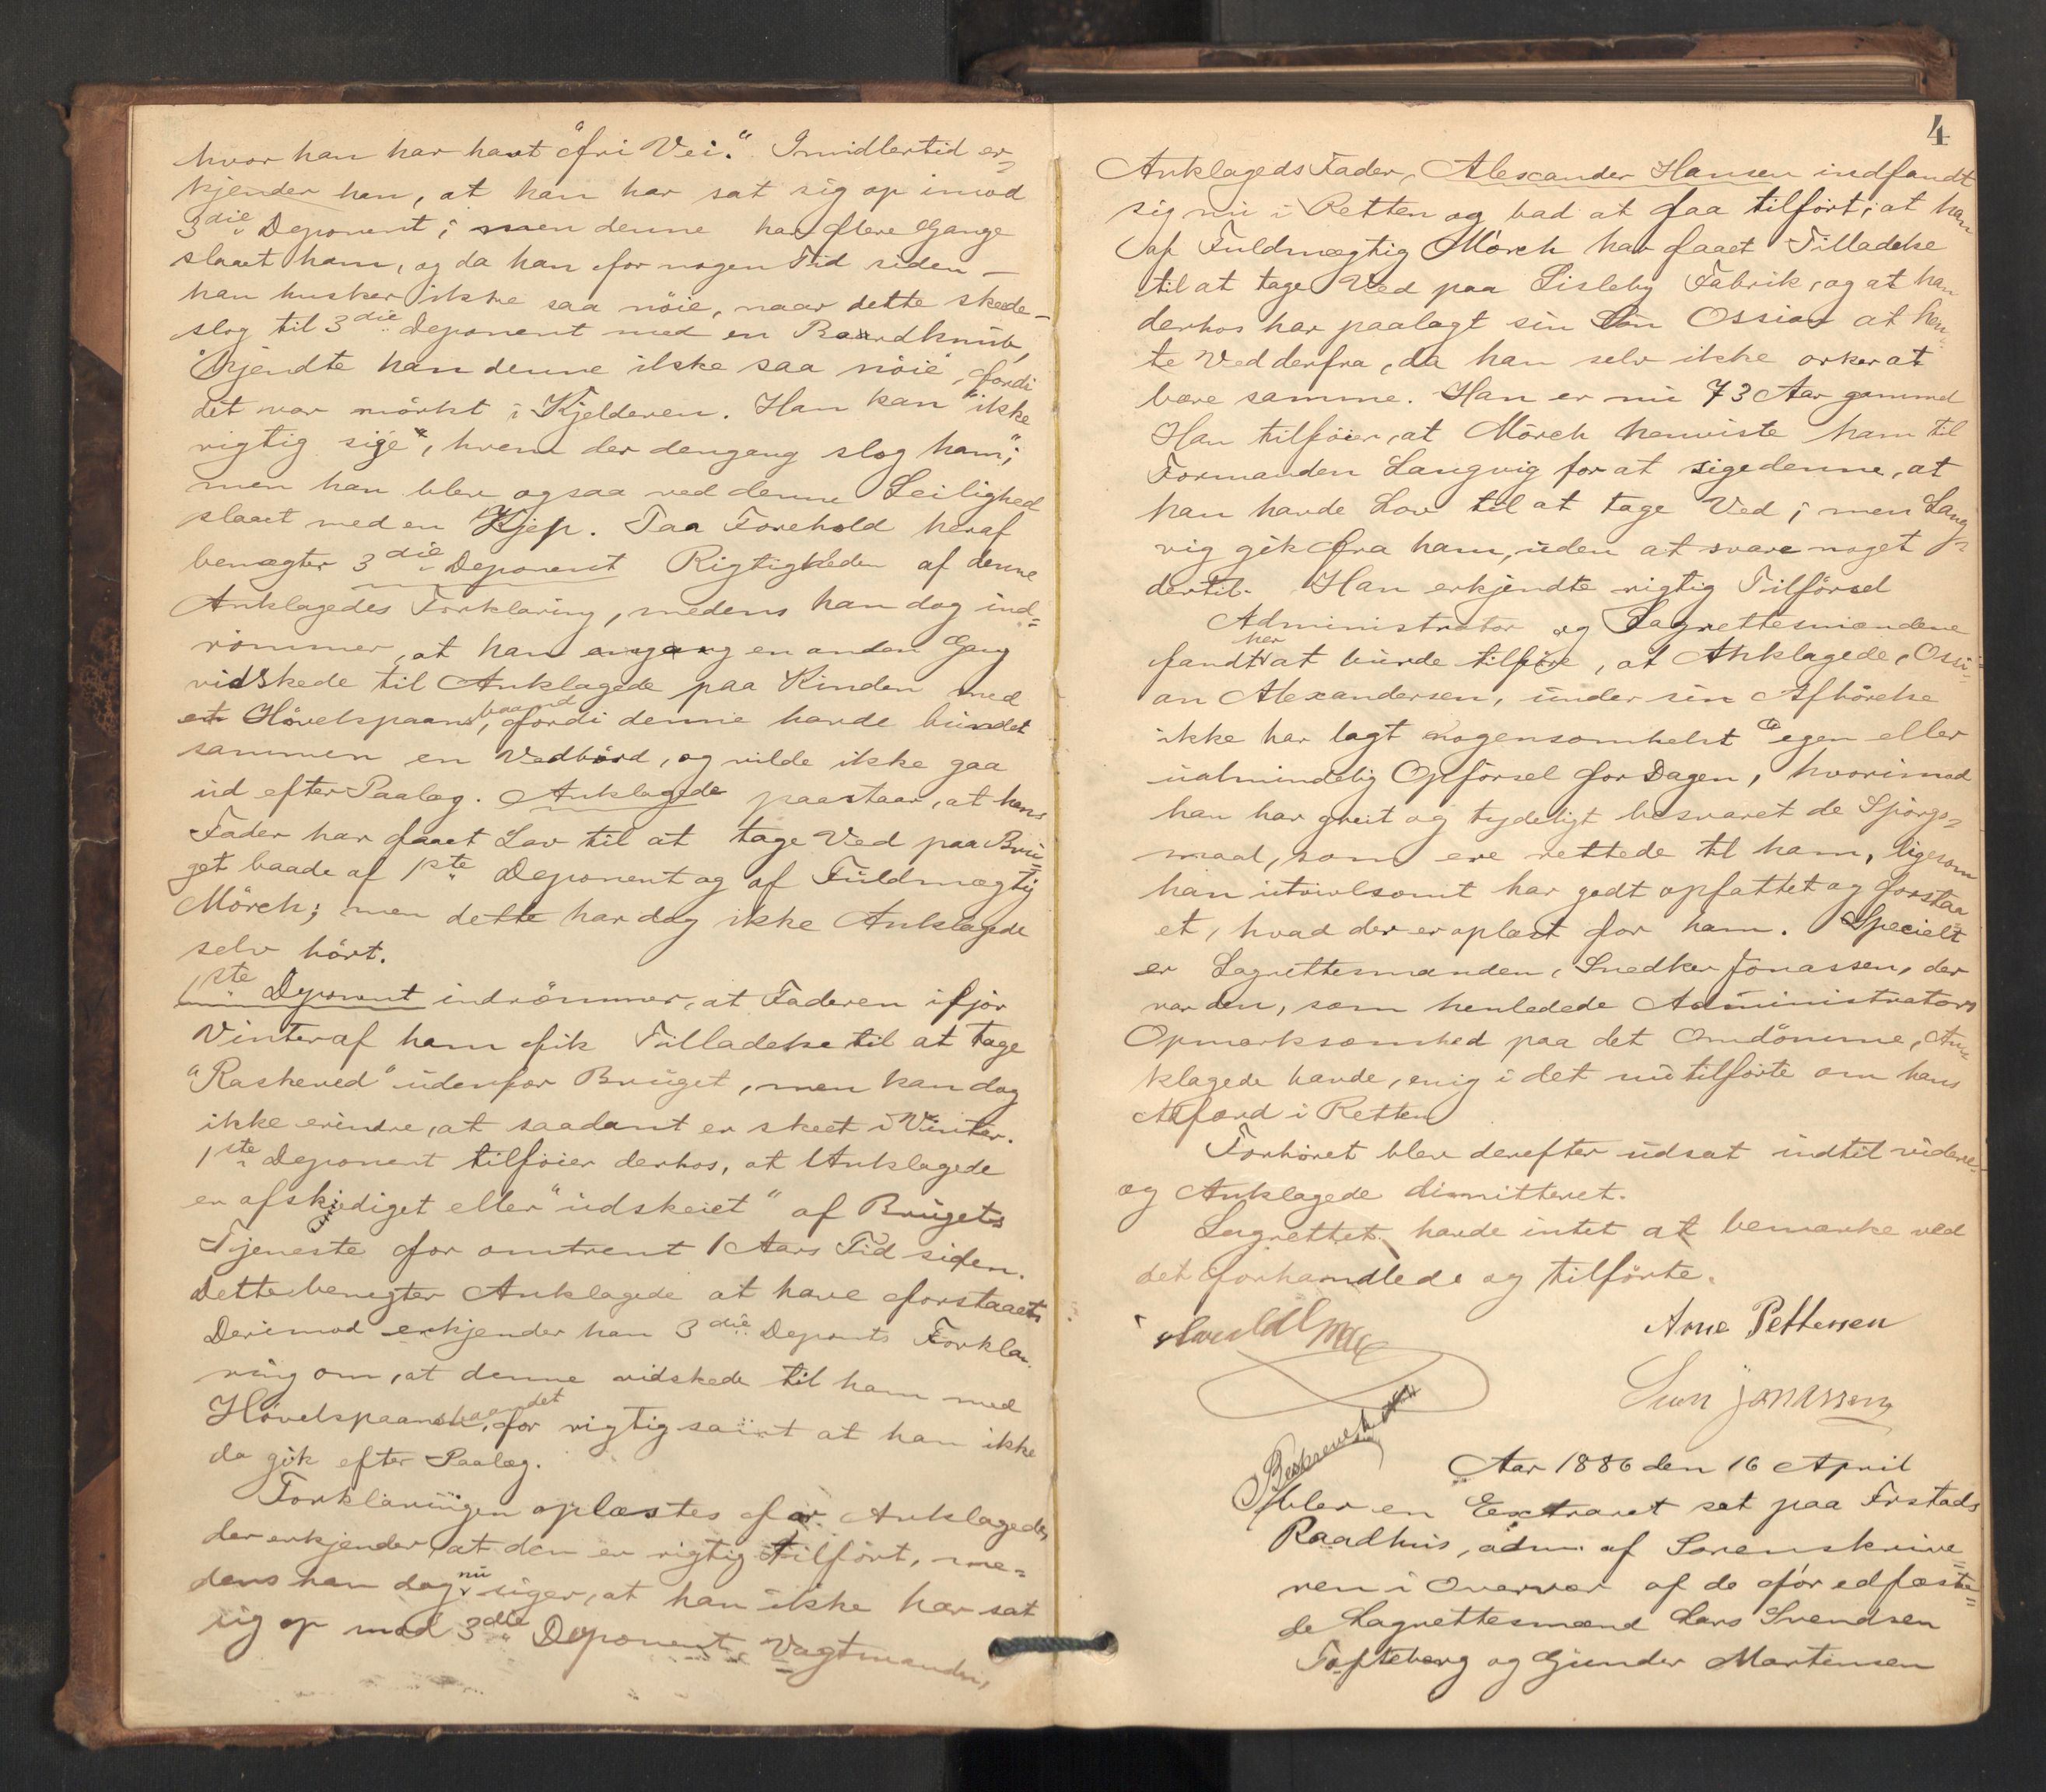 hvor han har havt "fri Vei." Imidlertid er-
kjender han, at han har sat sig op imod
3die Deponent; men denne har flere Gange
slaaet ham, og da han for nogen Tid siden –
han husker ikke saa nöie, naar dette skede –
slog til 3die Deponent med en Bordknub,
kjendte han denne ikke saa nöie, fordi
det var mörkt i Kjelderen. Han kan "ikke
rigtig sige", hvem der dengang slog ham;
men han blev ogsaa ved denne Leilighed
slaaet med en Kjep. Paa Forehold heraf
benægter 3die Deponent Rigtigheden af denne
Anklagedes Forklaring, medens han dog ind=
römmer, at han engang en anden Gang
vidskede til Anklagede paa Kinden med
et Hövelspaansbaand, fordi denne havde bundet
sammen en Vedbörd, og vilde ikke gaa
ud efter Paalæg. Anklagede paastaar, at hans
Fader har faaet Lov til at tage Ved paa Bru=
get baade af 1ste Deponent og af Fuldmægtig
Mörch; men dette har dog ikke Anklagede
selv hört.
1ste Deponent indrömmer, at Faderen ifjor
Vinter af ham fik Tilladelse til at tage
"Raskeved" udenfor Bruget, men kan dog
ikke erindre, at saadant er skeet i Vinter.
1ste Deponent tilföier derhos, at Anklagede
er afskjediget eller "udskeiet" af Brugets
Tjeneste for omtrent 1 Aars Tid siden.
Dette benegter Anklagede at have forstaaet.
Derimod erkjender han 3die Deponts Forkla-
ring om, at denne vidskede til ham med
Hövelspaansbaandet, for rigtig samt at han ikke
da gik efter Paalæg.
Forklaringen oplæstes for Anklagede,
der erkjender, at den er rigtig tilfört, me=
dens han dog nu siger, at han ikke har sat
sig op mod 3die Deponent, Vagtmanden,
4
Anklageds Fader, Alexander Hansen indfandt
sig nu i Retten og bad at faa tilfört, at han
af Fuldmægtig Mörch har faaet Tilladelse
til at tage Ved paa Lisleby Fabrik, og at han
derhos har paalagt sin Sön Ossian at hen-
te Ved derfra, da han selv ikke orker at
bære samme. Han er nu 73 Aar gammel
Han tilföier, at Mörch henviste ham til
Formanden Langvig for at sige denne, at
han havde Lov til at tage Ved; men Lang-
vig gik fra ham, uden at svare noget
dertil. Han erkjendte rigtig Tilförsel
Administrator og Lagrettesmændene
fandt her at burde tilföre, at Anklagede, Ossi-
an Alexandersen, under sin Afhörelse
ikke har lagt nogensomhelst egen eller
ualmindelig Opförsel for Dagen, hvorimod
han har greit og tydeligt besvaret de Spörgs-
maal, som ere rettede til ham, ligesom
han utvivlsomt har godt opfattet og forstaa
et, hvad der er oplæst for ham. Specielt
er Lagrettesmanden, Snedker Jonassen, der
var den, som henledede Administrators
Opmærksomhed paa det Omdömme, An-
klagede havde, enig i det nu tilförte om hans
Atfærd i Retten
Forhöret blev derefter udsat indtil videre
og Anklagede dimitteret.
Lagrettet havde intet at bemærke ved
det forhandlede og tilförte.
Arne Pettersen
Jonassen
Beskrevet
Aar 1886 den 16 April
blev en Extraret sat paa Frstads
Raadhus, adm. af Sorenskrive=
ren i Overvær af de för edfæste=
de Lagrettesmænd Lars Svendsen
Tofteberg og Gunder Martinsen